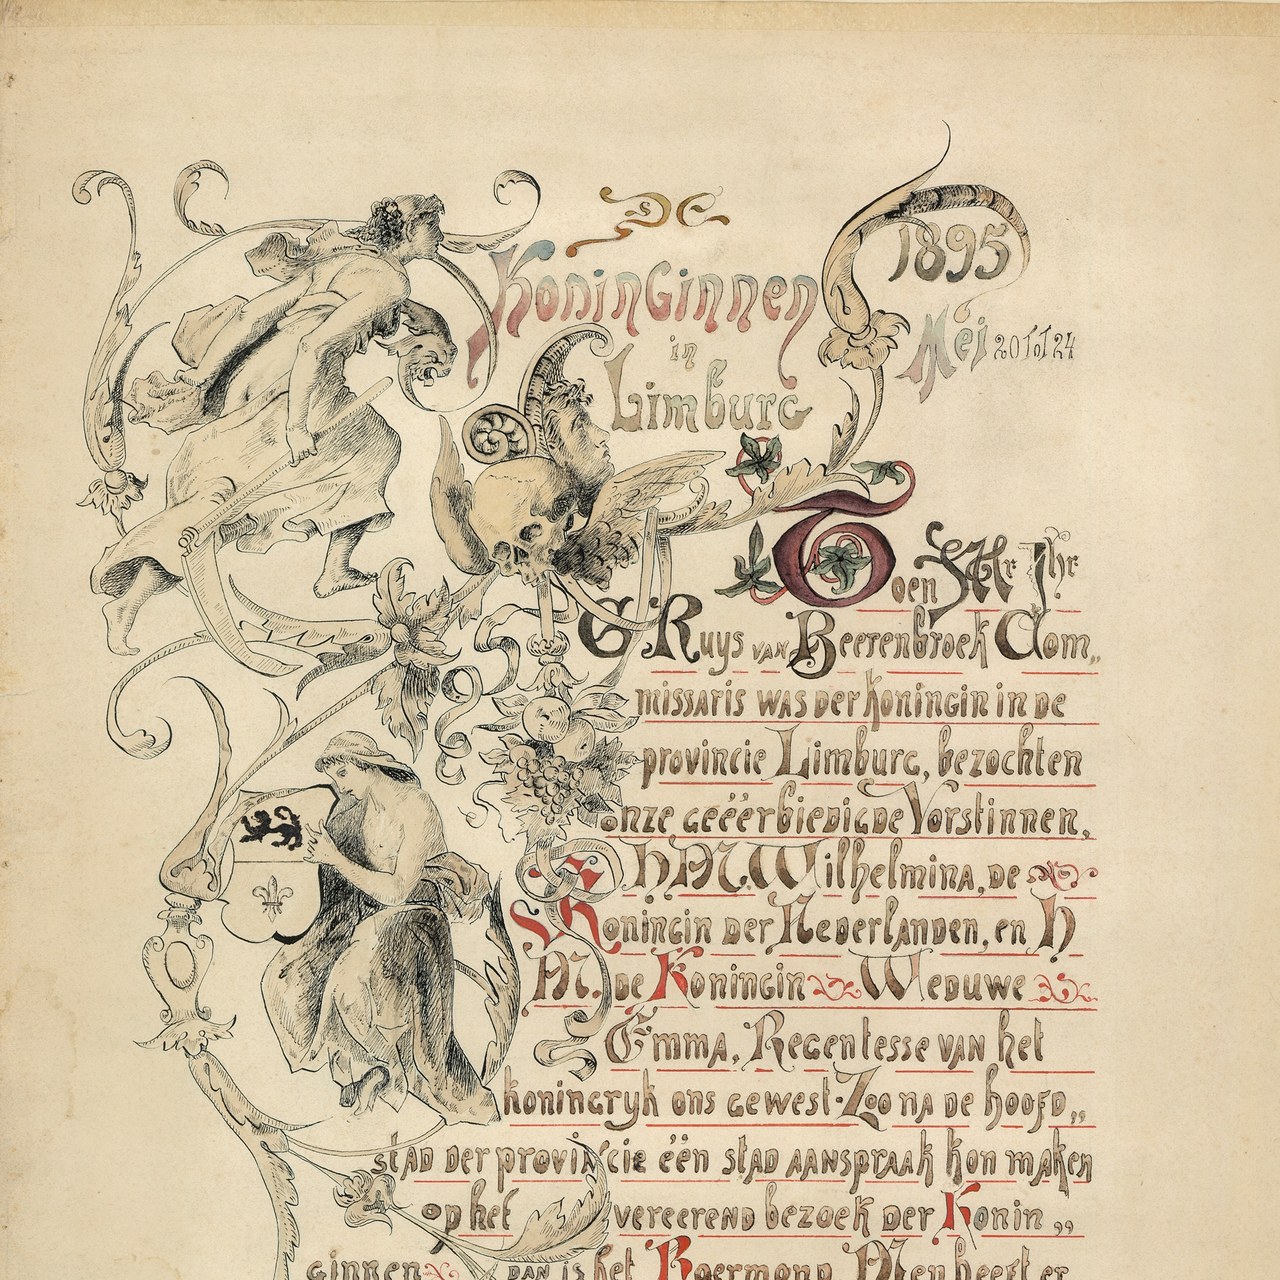 De
Koninginnen
in
Limburg
1895
Mei 20 tot 24
Toen Mr Jhr
G Ruys van Beerenbroek Com„
missaris was der Koningin in de
provincie Limburg, bezochten
onze geëerbiedigde Vorstinnen,
H M. Wilhelmina, de
Koningin der Nederlanden, en H
M. de Koningin Weduwe
Emma, Regentesse van het
koningryk ons gewest. Zoo na de hoofd„
stad der provincie één stad aanspraak kon maken
op het vereerend bezoek der Konin„
ginnen dan is het Roermond. Men heeft er